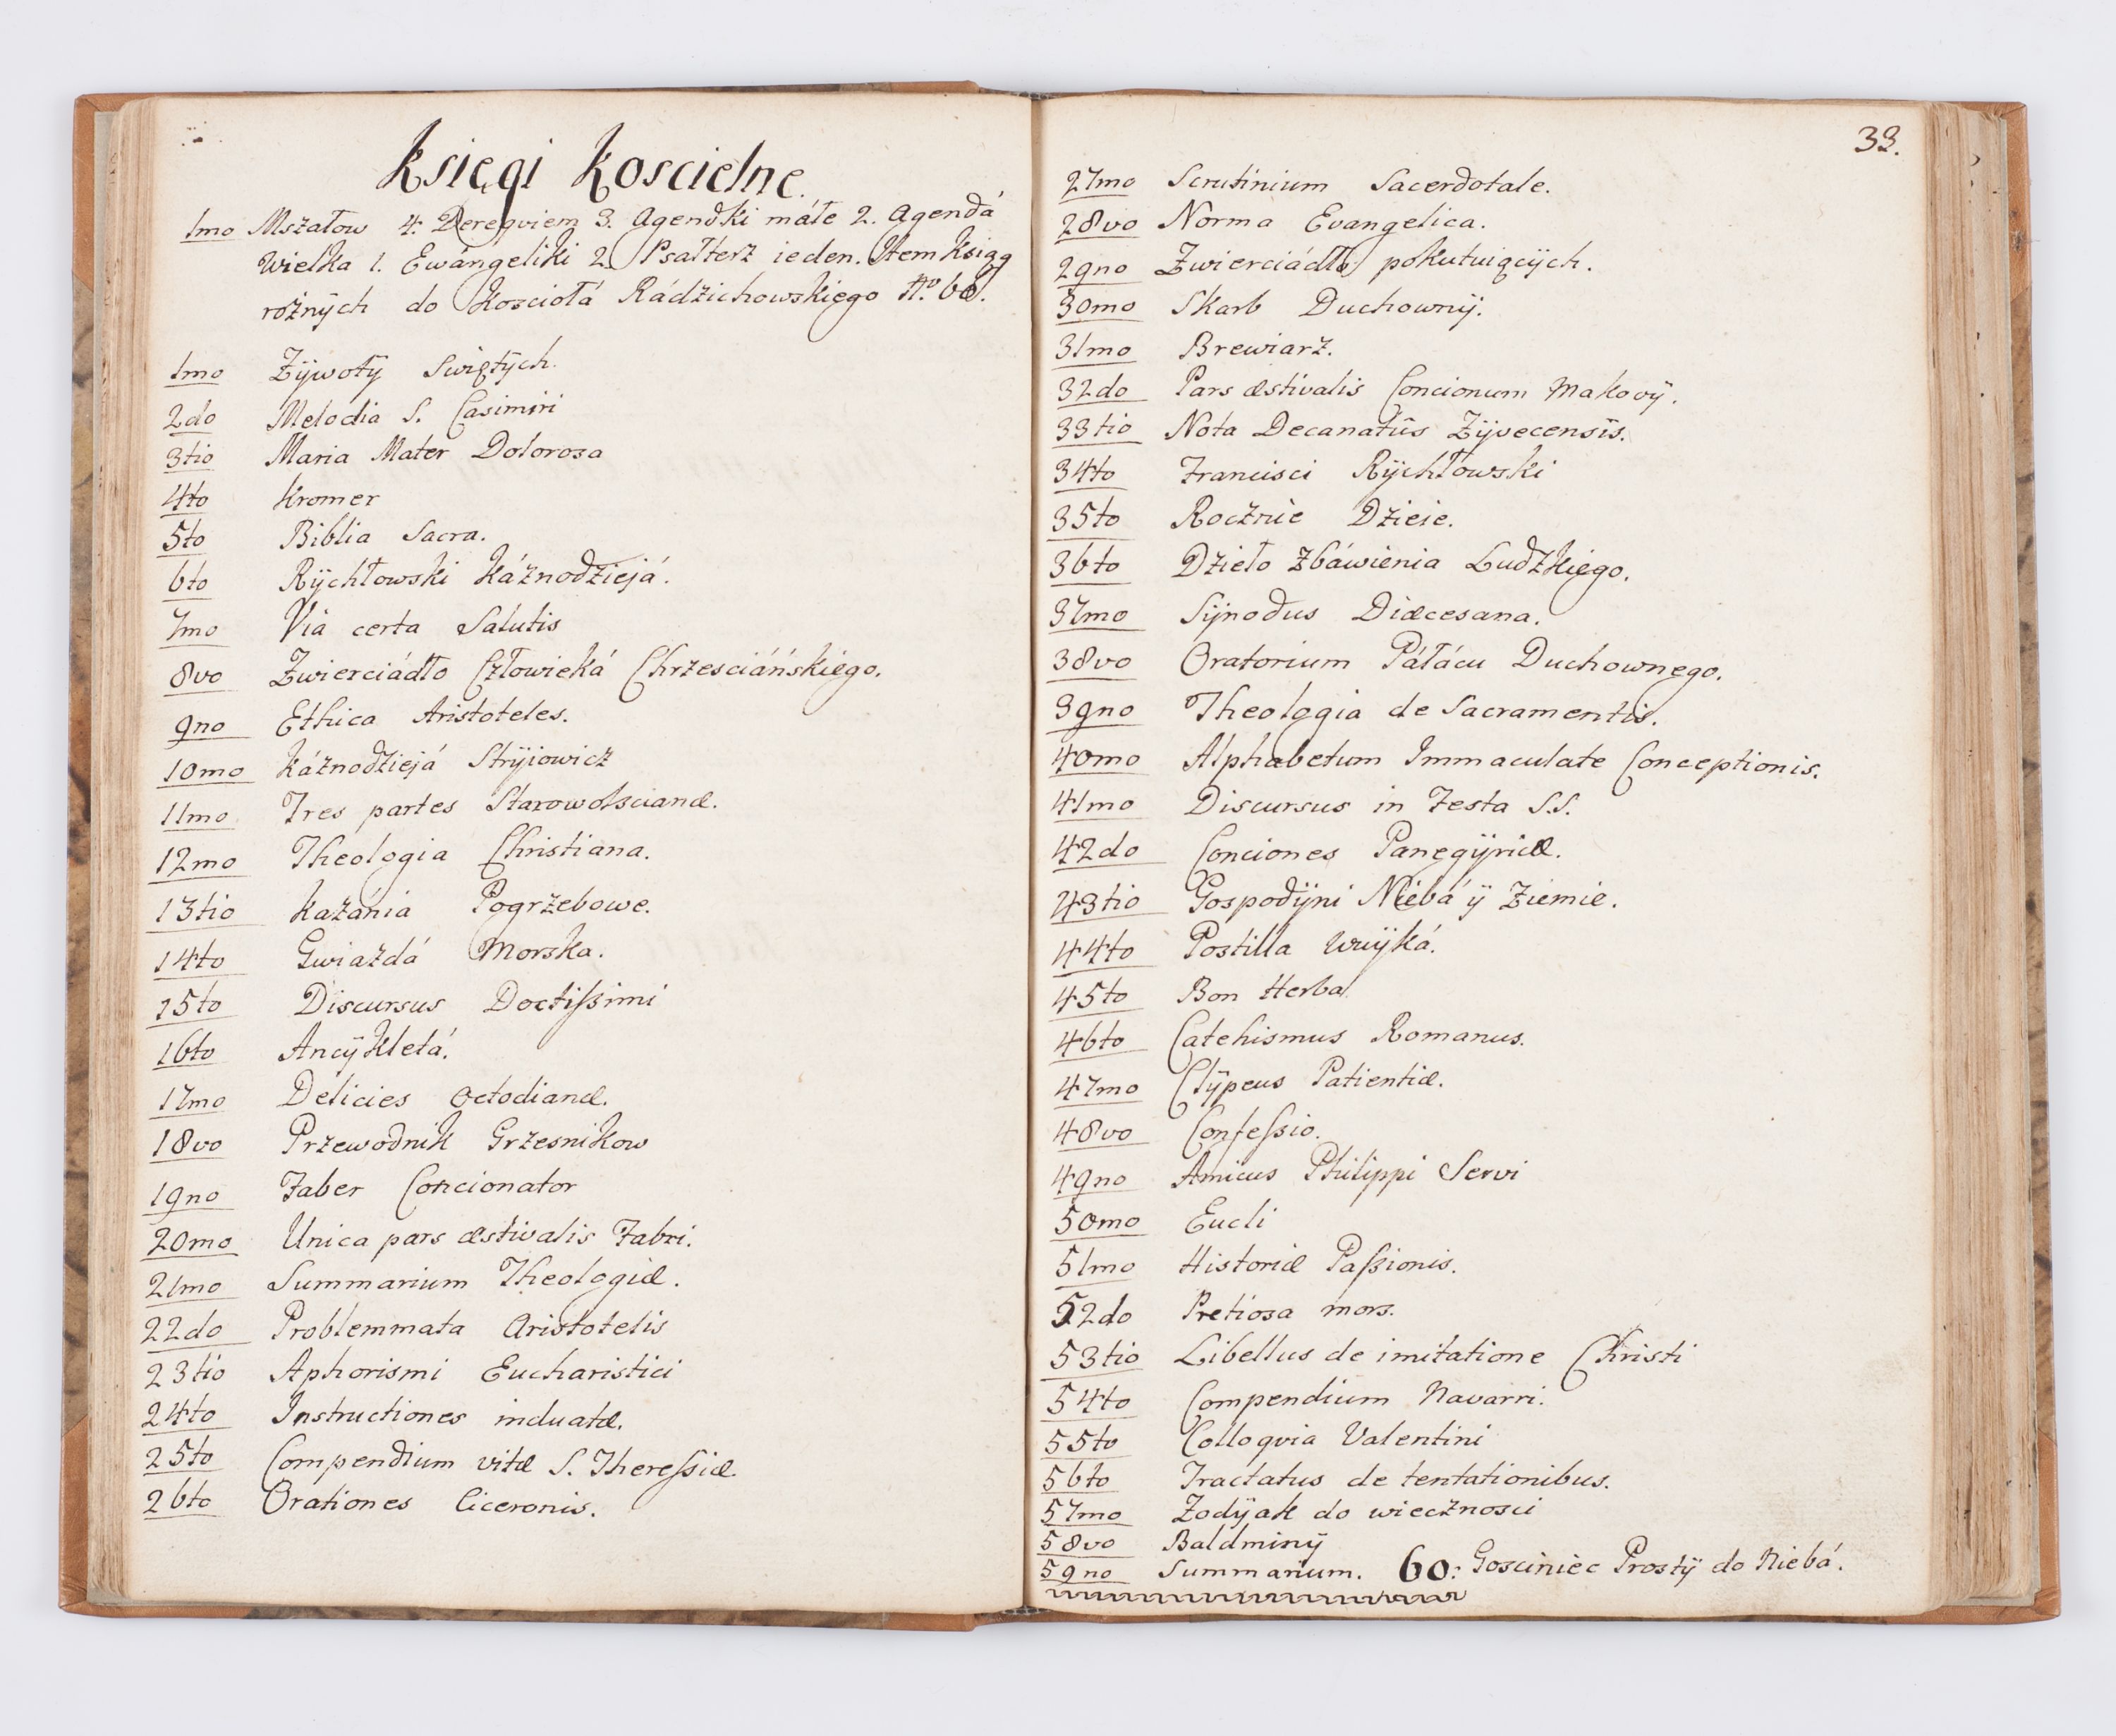 Księgi Koscielne.
1mo Mszałow 4. Dereqviem 3. Agendki máłe 2. Agendá
Wielka 1. Ewángeliki 2. Psałterz ieden. Item Ksiąg
rożnÿch do Koscioła Rádzichowskiego No 60.
1mo Zÿwotÿ Swiętÿch.
2do Melodia S. Casimiri
3tio Maria Mater Dolorosa
4to Kromer
5to Biblia Sacra.
6to Rÿchłowski Káznodziejá.
7mo Via certa Salutis
8vo Zwierciádło Człowieká Chrzesciáńskiego.
9no Ethica Aristoteles.
10mo Káznodziejá Strÿiowicz
11mo Tres partes Starowolscianæ.
12mo Theologia Christiana.
13tio Kazánia Pogrzebowe.
14to Gwiazdá Morska.
15to Discursus Doctissimi
16to Ancÿkletá.
17mo Delicies Octodianæ.
18vo Przewodnik Grzesnikow
19no Faber Concionator
20mo Unica pars æstivalis Fabri.
21mo Summarium Theologiæ.
22do Problemmata Aristotelis
23tio Aphorismi Eucharistici
24to Instructiones induatæ.
25to Compendium vitæ S. Theressiæ.
26to Orationes Ciceronis.
33.
27mo Scrutinium Sacerdotale.
28vo Norma Evangelica.
29no Zwierciádło pokutuiącÿch.
30mo Skarb Duchownÿ.
31mo Brewiarz.
32do Pars æstivalis Concionum Makovÿ.
33tio Nota Decanatûs Zÿvecensis.
34to Francisci Rÿchłowski
35to Rocznie Dzieie.
36to Dzieło Zbáwienia Ludzkiego.
37mo Sÿnodus Diæcesana.
38vo Oratorium Páłácu Duchownego.
39no Theologia de Sacramentis.
40mo Alphabetum Immaculate Conceptionis.
41mo Discursus in Festa S.S.
42do Conciones Panegÿricæ.
43tio Gospodÿni Niebá ÿ Ziemie.
44to Postilla Wuÿká.
45to Bon Herba
46to Catehismus Romanus.
47mo Clÿpeus Patientiæ.
48vo Confessio.
49no Amicus Philippi Servi
50mo Eucli
51mo Historiæ Passionis.
52do Pretiosa mors.
53tio Libellus de imitatione Christi
54to Compendium Navarri.
55to Colloqvia Valentini
56to Tractatus de tentationibus.
57mo Zodÿak do wiecznosci
58vo Baldminÿ
59no Summarium. 60: Gosciniec Prostÿ do Niebá.